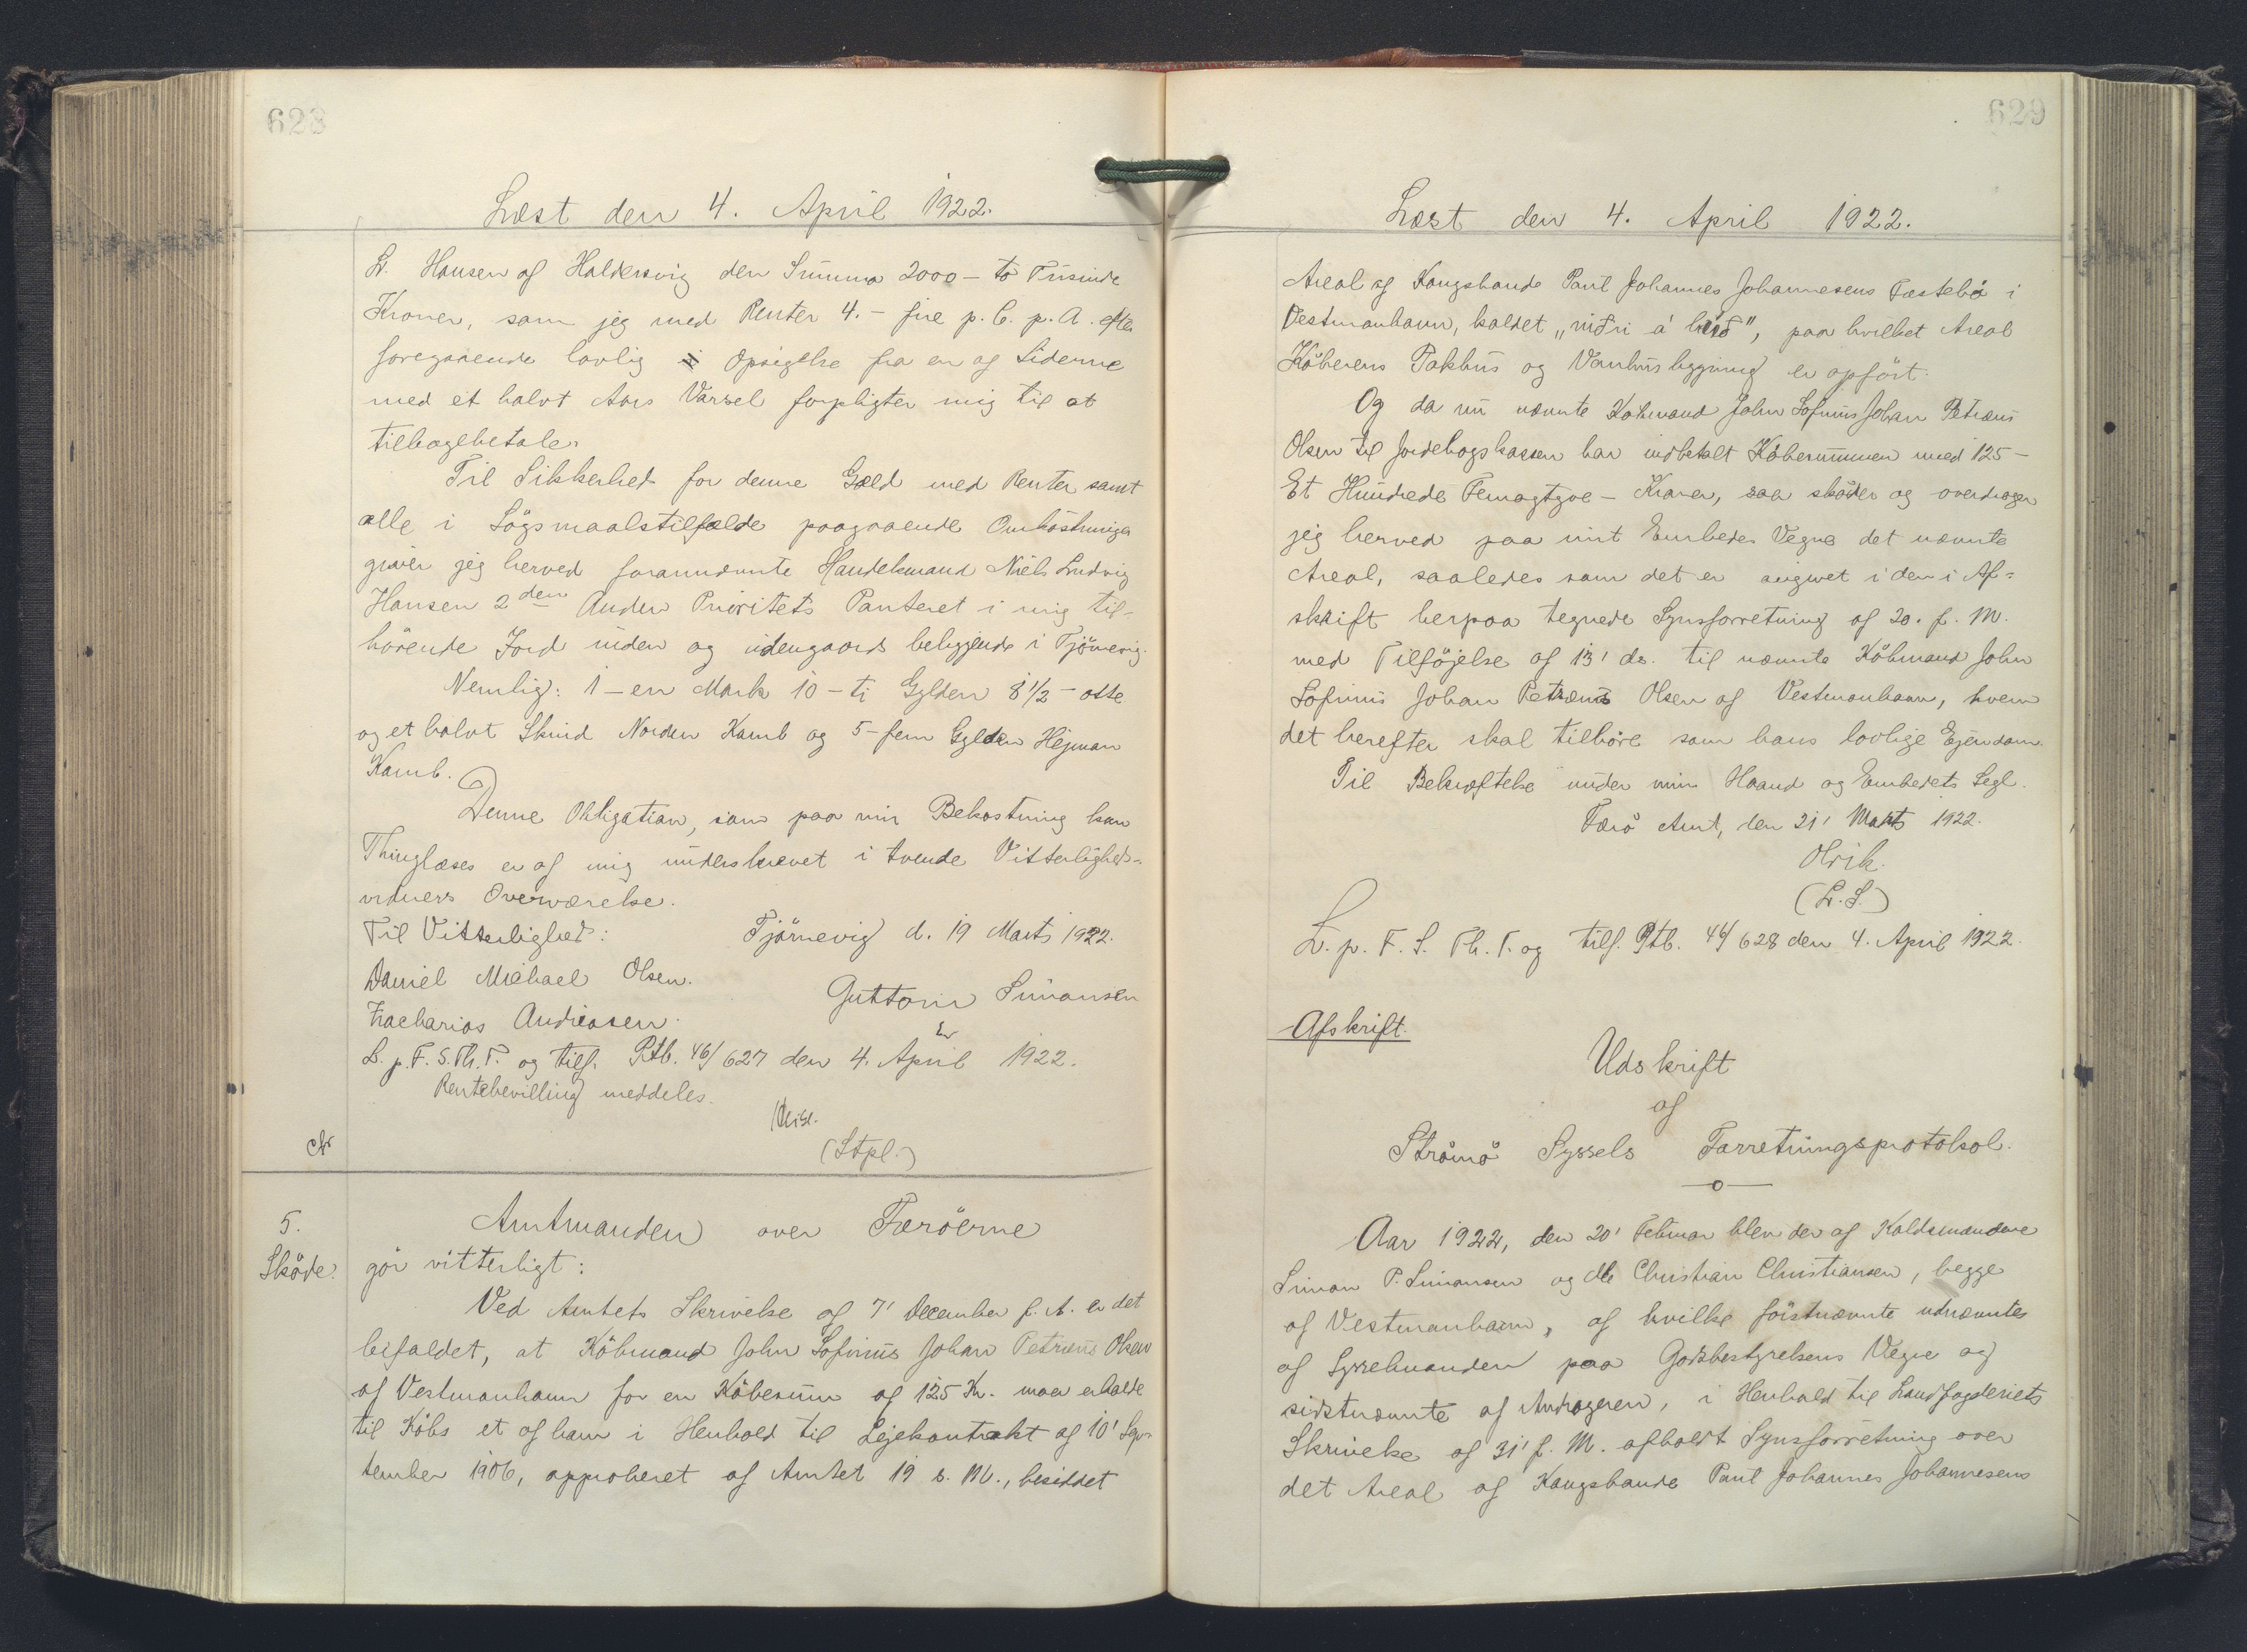 628
Læst den 4. April 1922.
L. Hansen af Haldersvig den Summa 2000 – to Tusinde
Kroner, som jeg med Renter 4. – fire p. C. p. A. efter
foregaaende lovlig Opsigelse fra en af Siderne
med et halvt Aars Varsel forpligter mig til at
tilbagebetale.
Til Sikkerhed for denne Gæld med Renter samt
alle i Sögsmaalstilfælde paagaaende Omkostninger
giver jeg herved forannævnte Handelsmand Niels Ludvig
Hansen 2den Anden Prioritets Panteret i mig til-
hörende Jord inden og udengaards beliggende i Tjörnevig.
Nemlig: 1 – en Mark 10 – ti Gylden 8 1/2 – otte
og et halvt Skind Norden Kamb og 5 – fem Gylden Hejman
Kamb.
Denne Obligation, som paa min Bekostning kan
Thinglæses er af mig underskrevet i tvende Vitterligheds-
vidners Overværelse.
Til Vitterlighed: Tjörnevig d. 19 Marts 1922.
Daniel Michael Olsen.
Guttorm Simonsen
Zacharias Andreasen.
L. p. F. S. Th. P. og tilf. Ptb. 46/627 den 4. April 1922.
Rentebevilling meddeles.
(Stpl.)
5.
Sköde.
Amtmanden over Færöerne
gör vitterligt:
Ved Amtets Skrivelse af 7' December f. A. er det
bifaldet, at Köbmand John Sofinus Johan Petræus Olsen
af Vestmanhavn for en Köbesum af 125 Kr. maa erholde
til Köbs et af ham i Henhold til Lejekontrakt af 10' Sep-
tember 1906, approberet af Amtet 19 s. M., besiddet
629
Læst den 4. April 1922.
Areal af Kongsbonde Paul Johannes Johannesens Fæstebö i
Vestmanhavn, kaldet „niðri á , paa hvilket Areal
Köberens Pakhus og Vaanhusbygning er opfört.
Og da nu nævnte Köbmand John Sofinus Johan Petræus
Olsen til Jordebogskassen har indbetalt Köbesummen med 125 –
Et Hundrede Femogtyve – Kroner, saa sköder og overdrager
jeg herved paa mit Embedes Vegne det nævnte
Areal, saaledes som det er angivet i den i Af-
skrift herpaa tegnede Synsforretning af 20. f. M.
med Tilföjelse af 13' ds. til nævnte Köbmand John
Sofinus Johan Petræus Olsen af Vestmanhavn, hvem
det herefter skal tilhöre som hans lovlige Ejendom.
Til Bekræftelse under min Haand og Embedets Segl.
Færö Amt, den 21' Marts 1922.
Olrik.
(L.S.)
L. p. F. S. Th. P. og tilf. Ptb. 46/628 den 4. April 1922.
Afskrift.
Udskrift
af
Strömö Syssels Forretningsprotokol.
—o—
Aar 1922, den 20' Februar blev der af Kaldsmændene
Simon P. Simonsen og Christian Christiansen, begge
af Vestmanhavn, af hvilke förstnævnte udnævntes
af Sysselmanden paa Godsbestyrelsens Vegne og
sidstnævnte af Andrageren, i Henhold til Landfogderiets
Skrivelse af 31' f. M. afholdt Synsforretning over
det Areal af Kongsbonde Paul Johannes Johannesens